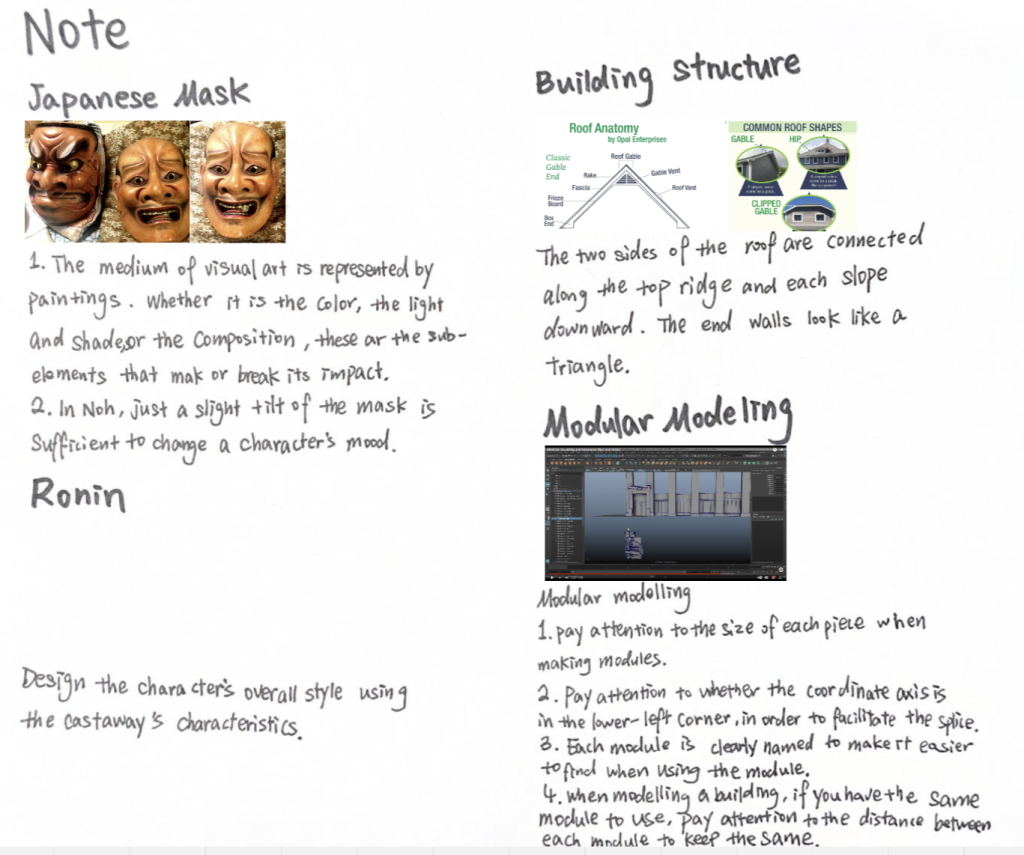 Note
Japanese Mask
1. The medium of visual art is represented by
paintings. Whether it is the color, the light
and shade,or the Composition, these ar the sub-
elements that mak or break its impact.
2. In Noh, just a slight tilt of the mask is
sufficient to change a character's mood.
Ronin
Design the character's overall style using
the castaway's characteristics.
Building structure
Roof Anatomy
by Opal Enterprises
Classic
Gable
End
Roof Gable
Rake
Gable Vent
Fascia
Roof Vent
Frieze
Board
Box
End
COMMON ROOF SHAPES
GABLE
HIP
CLIPPED
GABLE
The two sides of the roof are connected
along the top ridge and each slope
downward. The end walls look like a
triangle.
Modular Modeling
Modular modelling
1. pay attention to the size of each piece when
making modules.
2. Pay attention to whether the coordinate axis is
in the lower-left corner, in order to facilitate the splice.
3. Each module is clearly named to make it easier
to find when using the module.
4. when modelling a building, if you have the same
module to use, pay attention to the distance between
each module to keep the same.